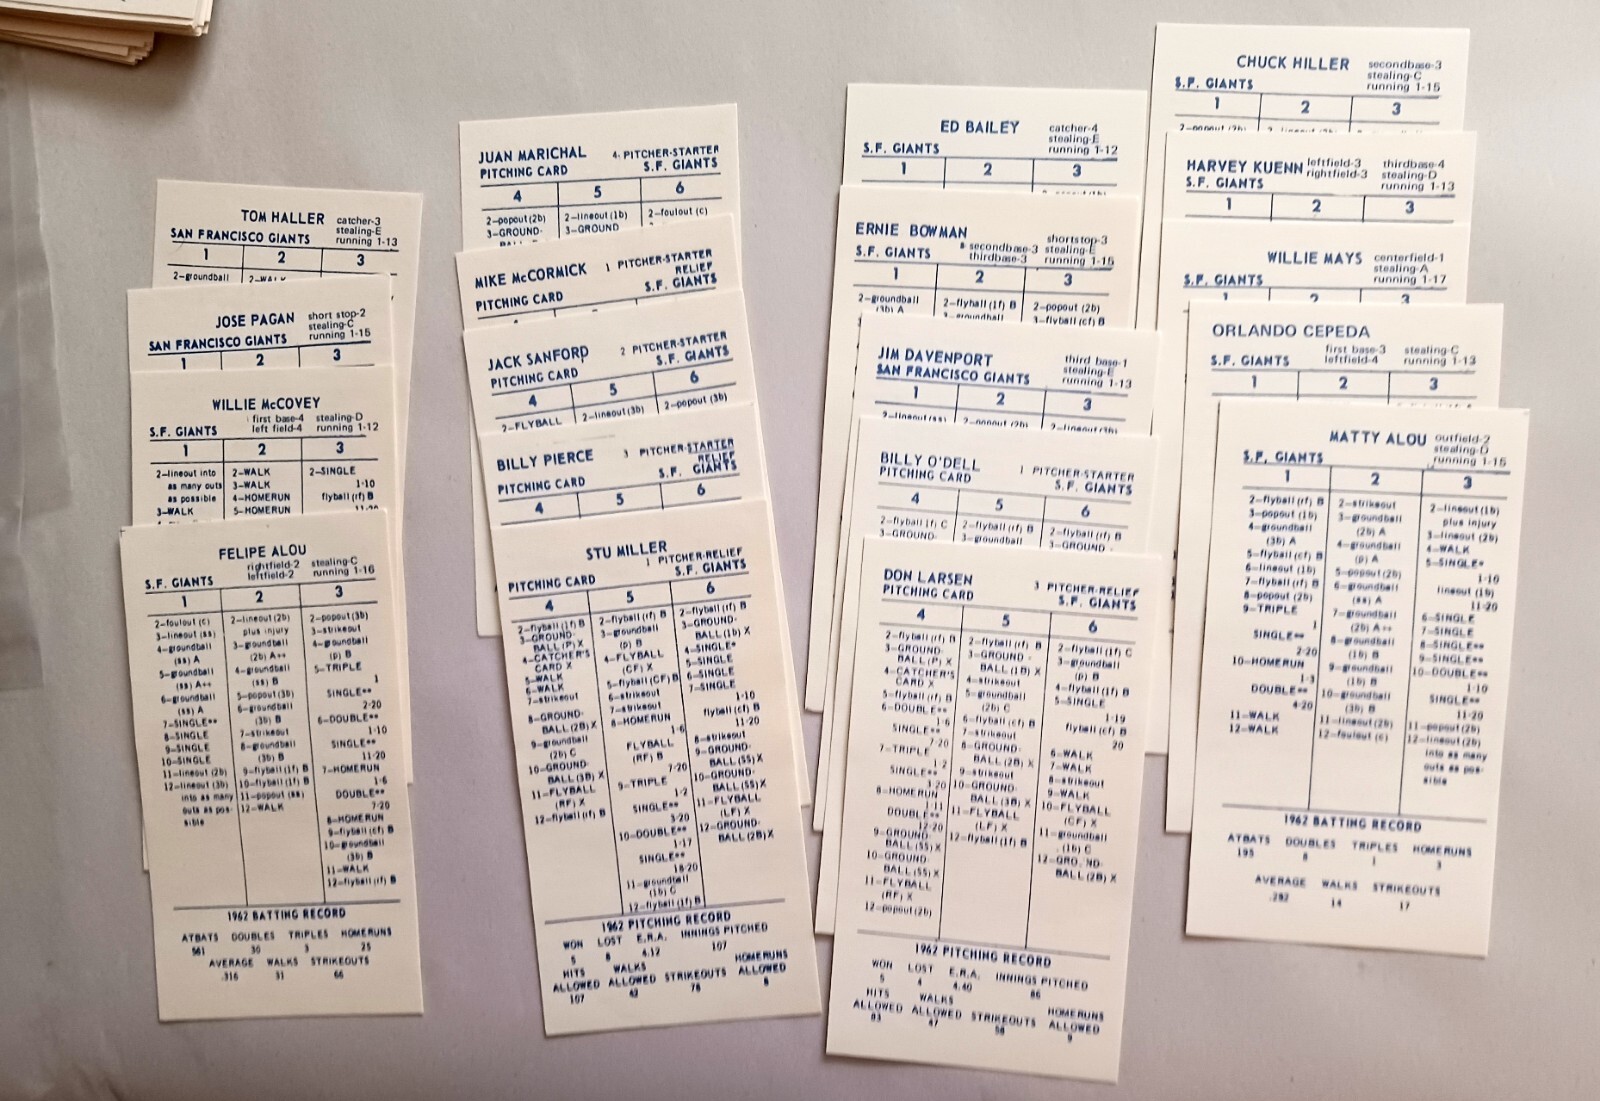 TOM HALLER catcher-3
stealing-E
SAN FRANCISCO GIANTS running 1-13
1 2 3
2-groundball 2-WALK
JOSE PAGAN short stop-2
stealing-C
SAN FRANCISCO GIANTS running 1-15
1 2 3
WILLIE McCOVEY
first base-4 stealing-D
S.F. GIANTS left field-4 running 1-12
1 2 3
2-lineout into 2-WALK 2-SINGLE
as many outs 3-WALK 1-10
as possible 4-HOMERUN flyball (rf) B
3-WALK 5-HOMERUN 11-20
FELIPE ALOU
rightfield-2 stealing-C
S.F. GIANTS leftfield-2 running 1-16
1 2 3
2-foulout (c) 2-lineout (2b) 2-popout (3b)
3-lineout (ss) plus injury 3-strikeout
4-groundball 3-groundball 4-groundball
(ss) A (2b) A++ (p) B
5-groundball 4-groundball 5-TRIPLE
(ss) A++ (ss) B 1
6-groundball 5-popout (3b) SINGLE**
(ss) A 6-groundball 2-20
7-SINGLE** (3b) B 6-DOUBLE**
8-SINGLE 7-strikeout 1-10
9-SINGLE 8-groundball SINGLE**
10-SINGLE (3b) B 11-20
11-lineout (2b) 9-flyball (lf) B 7-HOMERUN
12-lineout (3b) 10-flyball (lf) B 1-6
into as many 11-popout (ss) DOUBLE**
outs as pos- 12-WALK 7-20
sible 8-HOMERUN
9-flyball (cf) B
10-groundball
(3b) B
11-WALK
12-flyball (rf) B
1962 BATTING RECORD
ATBATS DOUBLES TRIPLES HOMERUNS
561 30 3 25
AVERAGE WALKS STRIKEOUTS
.316 31 66
JUAN MARICHAL 4- PITCHER-STARTER
PITCHING CARD S.F. GIANTS
4 5 6
2-popout (2b) 2-lineout (1b) 2-foulout (c)
3-GROUND- 3-GROUND
MIKE McCORMICK 1 PITCHER-STARTER
RELIEF
PITCHING CARD S.F. GIANTS
JACK SANFORD 2 PITCHER-STARTER
PITCHING CARD S.F. GIANTS
4 5 6
2-FLYBALL 2-lineout (3b) 2-popout (3b)
BILLY PIERCE 3 PITCHER-STARTER
RELIEF
PITCHING CARD S.F. GIANTS
4 5 6
STU MILLER
1 PITCHER-RELIEF
PITCHING CARD S.F. GIANTS
4 5 6
2-flyball (lf) B 2-flyball (rf) B 2-flyball (rf) B
3-GROUND- 3-groundball 3-GROUND-
BALL (P) X (p) B BALL (1b) X
4-CATCHER'S 4-FLYBALL 4-SINGLE*
CARD X (CF) X 5-SINGLE
5-WALK 5-flyball (CF) B 6-SINGLE
6-WALK 6-strikeout 7-SINGLE
7-strikeout 7-strikeout 1-10
8-GROUND- 8-HOMERUN flyball (cf) B
BALL (2B) X 1-6 11-20
9-groundball FLYBALL 8-strikeout
(2b) C (RF) B 9-GROUND-
10-GROUND- 7-20 BALL (SS) X
BALL (3B) X 9-TRIPLE 10-GROUND-
11-FLYBALL 1-2 BALL (SS) X
(RF) X SINGLE** 11-FLYBALL
12-flyball (rf) B 3-20 (LF) X
10-DOUBLE** 12-GROUND-
1-17 BALL (2B) X
SINGLE**
18-20
11-groundball
(1b) C
12-flyball (lf) B
1962 PITCHING RECORD
WON LOST E.R.A. INNINGS PITCHED
5 8 4.12 107
HITS WALKS HOMERUNS
ALLOWED ALLOWED STRIKEOUTS ALLOWED
107 42 78 8
ED BAILEY catcher-4
stealing-E
S.F. GIANTS running 1-12
1 2 3
ERNIE BOWMAN shortstop-3
secondbase-3 stealing-E
S.F. GIANTS thirdbase-3 running 1-15
1 2 3
2-groundball 2-flyball (lf) B 2-popout (2b)
(3b) A 3-groundball 3-flyball (cf) B
JIM DAVENPORT third base-1
stealing-E
SAN FRANCISCO GIANTS running 1-13
1 2 3
2-lineout (ss) 2-popout (2b) 2-lineout (3b)
BILLY O'DELL 1 PITCHER-STARTER
PITCHING CARD S.F. GIANTS
4 5 6
2-flyball lf) C 2-flyball (rf) B 2-flyball (lf) B
3-GROUND- 3-groundball 3-GROUND-
DON LARSEN 3 PITCHER-RELIEF
PITCHING CARD S.F. GIANTS
4 5 6
2-flyball (rf) B 2-flyball (rf) B 2-flyball (lf) C
3-GROUND- 3-GROUND- 3-groundball
BALL (P) X BALL (1B) X (p) B
4-CATCHER'S 4-strikeout 4-flyball (lf) B
CARD X 5-groundball 5-SINGLE
5-flyball (rf) B (2b) C 1-19
6-DOUBLE** 6-flyball (cf) B flyball (rf) B
1-6 7-strikeout 20
SINGLE** 8-GROUND- 6-WALK
7-20 BALL (2B) X 7-WALK
7-TRIPLE 9-strikeout 8-strikeout
1-2 10-GROUND- 9-WALK
SINGLE** BALL (3B) X 10-FLYBALL
3-20 11-FLYBALL (CF) X
8-HOMERUN (LF) X 11-groundball
1-11 12-flyball (lf) B (1b) C
DOUBLE** 12-GROUND-
12-20 BALL (2B) X
9-GROUND-
BALL (SS) X
10-GROUND-
BALL (SS) X
11-FLYBALL
(RF) X
12-popout (2b)
1962 PITCHING RECORD
WON LOST E.R.A. INNINGS PITCHED
5 4 4.40 86
HITS WALKS HOMERUNS
ALLOWED ALLOWED STRIKEOUTS ALLOWED
83 47 58 9
CHUCK HILLER secondbase-3
stealing-C
S.F. GIANTS running 1-15
1 2 3
2-popout (2b)
HARVEY KUENN leftfield-3 thirdbase-4
rightfield-3 stealing-D
S.F. GIANTS running 1-13
1 2 3
WILLIE MAYS centerfield-1
stealing-A
S.F. GIANTS running 1-17
1 2 3
ORLANDO CEPEDA
first base-3 stealing-C
S.F. GIANTS leftfield-4 running 1-13
1 2 3
MATTY ALOU outfield-2
stealing-D
S.F. GIANTS running 1-15
1 2 3
2-flyball (rf) B 2-strikeout 2-lineout (1b)
3-popout (1b) 3-groundball plus injury
4-groundball (2b) A 3-lineout (2b)
(3b) A 4-groundball 4-WALK
5-flyball (cf) B (p) A 5-SINGLE*
6-lineout (1b) 5-popout (2b) 1-10
7-flyball (rf) B 6-groundball lineout (1b)
8-popout (2b) (ss) A 11-20
9-TRIPLE 7-groundball 6-SINGLE
1 (2b) A++ 7-SINGLE
SINGLE** 8-groundball 8-SINGLE**
2-20 (1b) B 9-SINGLE**
10-HOMERUN 9-groundball 10-DOUBLE**
1-3 (1b) B 1-10
DOUBLE** 10-groundball SINGLE**
4-20 (3b) B 11-20
11-WALK 11-lineout (2b) 11-popout (2b)
12-WALK 12-foulout (c) 12-lineout (2b)
into as many
outs as pos-
sible
1962 BATTING RECORD
ATBATS DOUBLES TRIPLES HOMERUNS
195 8 1 3
AVERAGE WALKS STRIKEOUTS
.292 14 17